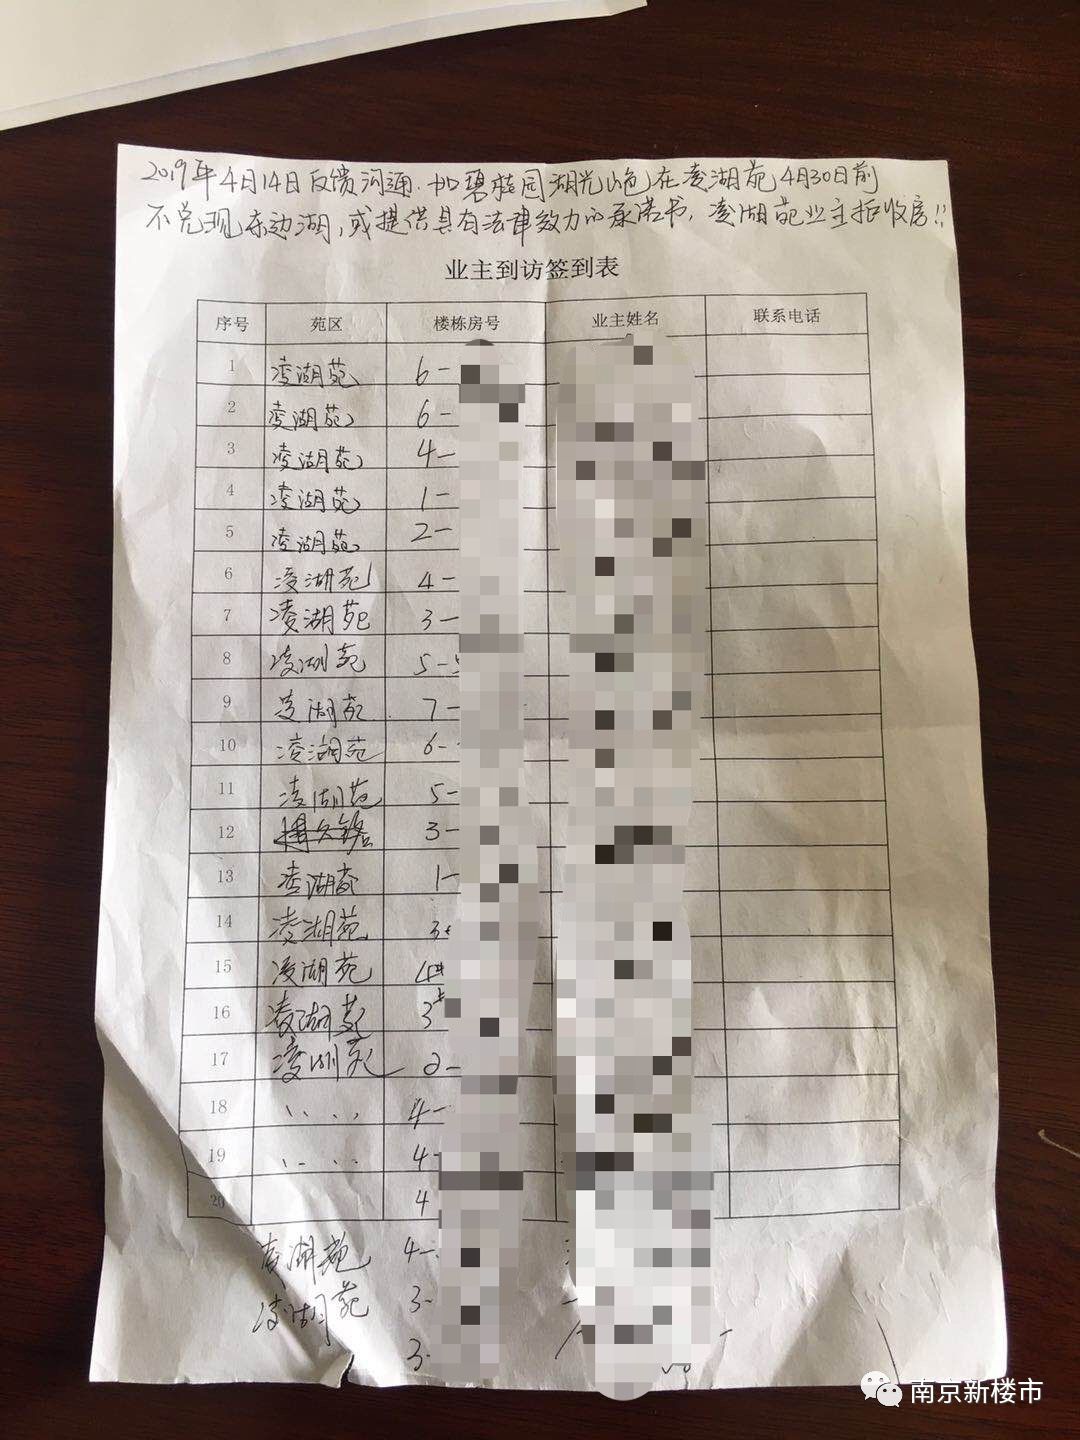 2019年4月14日反馈沟通.如碧桂园湖光山色在凌湖苑4月30日前
不兑现东边湖,或提供具有法律效力的承诺书,凌湖苑业主拒收房!!
业主到访签到表
序号 苑区 楼栋房号 业主姓名 联系电话
1 凌湖苑 6-
2 凌湖苑 6-
3 凌湖苑 4-
4 凌湖苑 1-
5 凌湖苑 2-
6 凌湖苑 4-
7 凌湖苑 3-
8 凌湖苑 5-
9 凌湖苑 7-
10 凌湖苑 6-
11 凌湖苑 5-
12 3-
13 凌湖苑 1-
14 凌湖苑 3
15 凌湖苑 4#
16 凌湖苑 3#
17 凌湖苑 2-
18 4-
19 4-
20 4
凌湖苑 4-
凌湖苑 3-
3-
南京新楼市